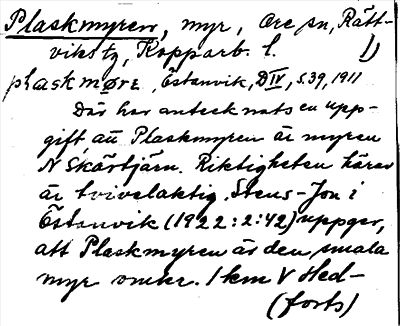 Plaskmyren, myr, Ore sn, Rätt-
viks tg, Kopparb. l. 1)
plaskmørɛ, Östanvik, D IV, s. 39, 1911
Där har antecknats en upp-
gift, att Plaskmyren är myren
N Skärtjärn. Riktigheten härav
är tvivelaktig. Stens-Jon i
Östanvik (1922:2:42) uppger,
att Plaskmyren är den smala
myr omkr. 1 km V Hed-
(forts)